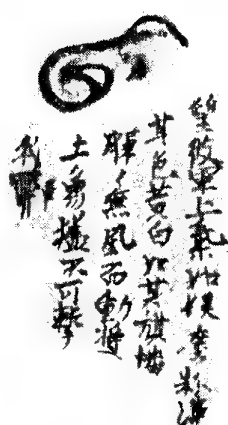 望彼軍上氣如塵粉沸
其色黃白如其旗幡
暉〻無風而動將
士勇猛不可擊